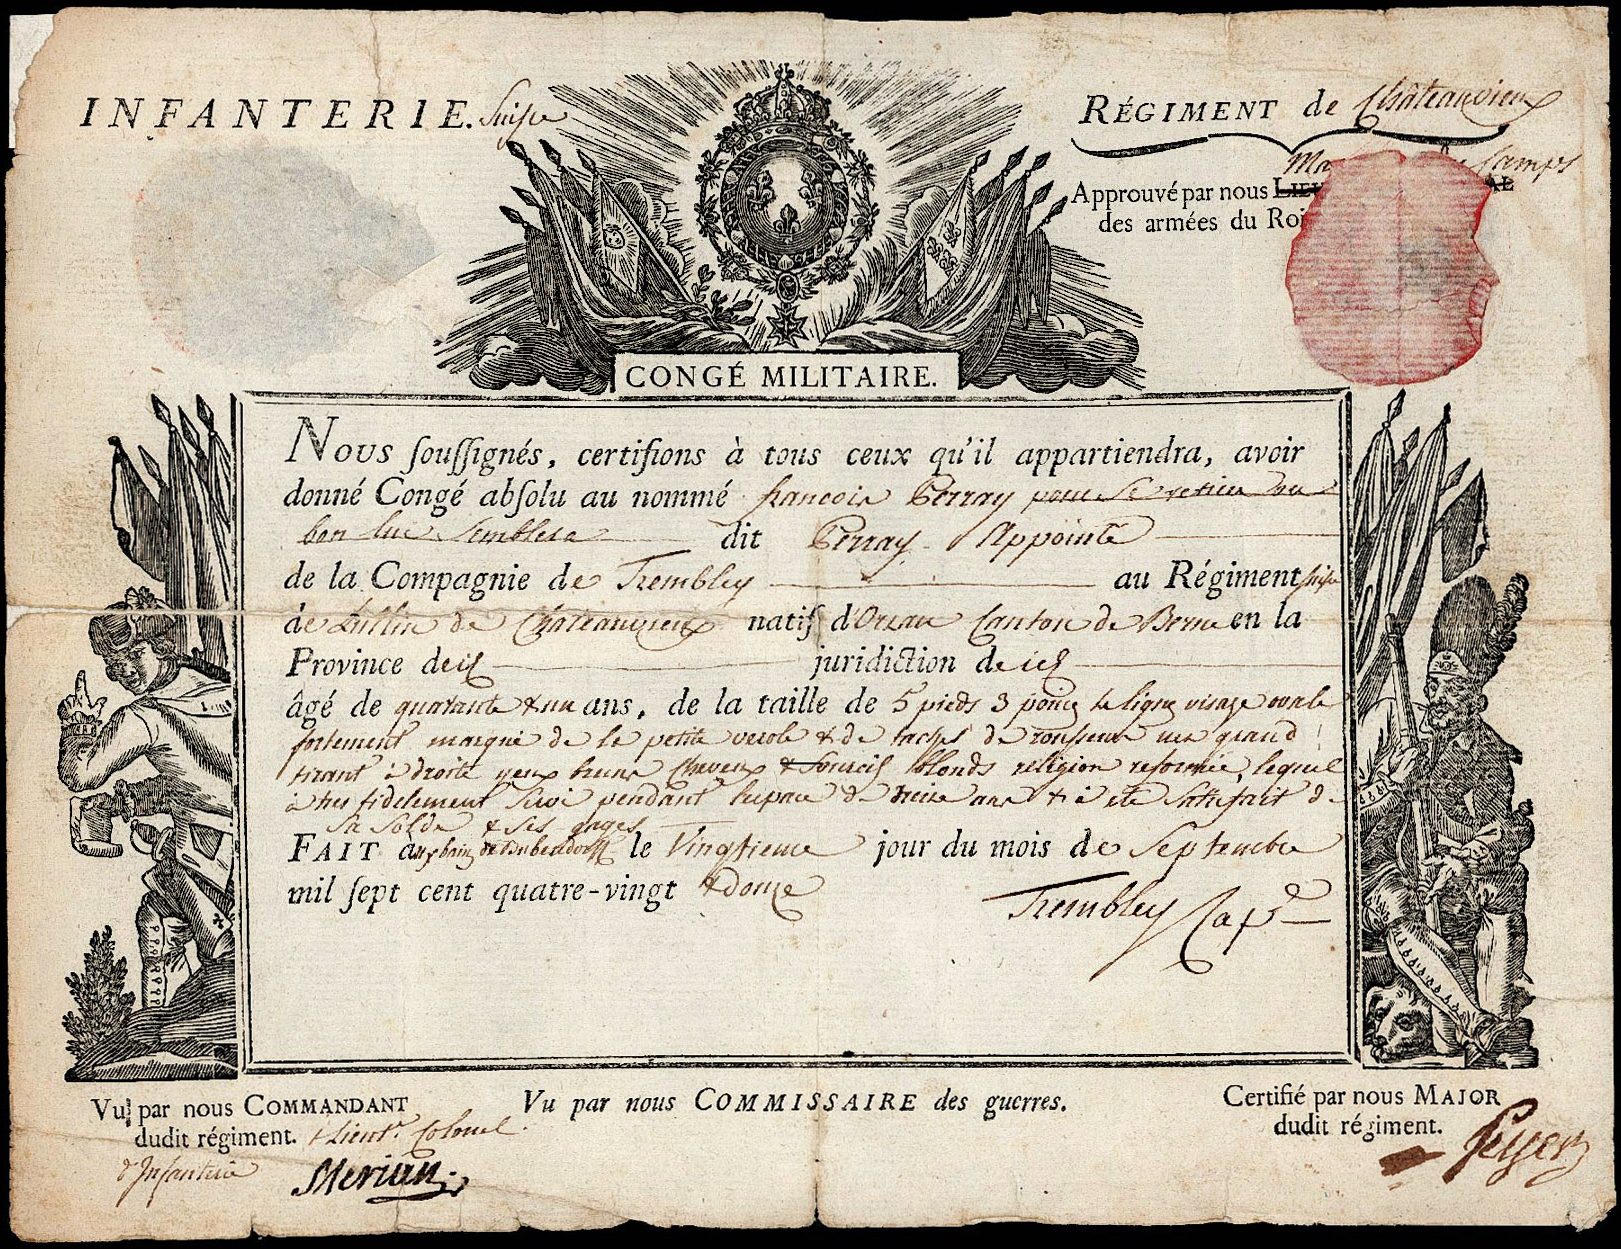 INFANTERIE. Suisse
RÉGIMENT de Châteauvieux
Approuvé par nous
des armées du Roi
CONGÉ MILITAIRE.
Nous soussignés, certifions à tous ceux qu'il appartiendra, avoir
donné Congé absolu au nommé francois Perray pour se retirer ou
bon lui semblera dit Perray Appointé
de la Compagnie de Trembley au Régiment suisse
de Lullin de Châteauvieux natif d' Canton de Berne en la
Province de juridiction de
âgé de quarante & un ans, de la taille de 5 pieds 3 pouces ligne visage ovale
fortement marqué de la petite verole & de taches de rousseur nez grand
tirant à droite yeux bruns cheveux & sourcils blonds religion reformée, lequel
à tres fidelement servi pendant l'espace de treize ans & à été satisfait de
sa solde & ses gages
FAIT aux bains de Bubendorff le Vingtieme jour du mois de Septembre
mil sept cent quatre-vingt & douze
Trembley Cap.ne
Vu par nous COMMANDANT
dudit régiment. & Lieut.t Colonel
d'Infanterie Merian
Vu par nous COMMISSAIRE des guerres.
Certifié par nous MAJOR
dudit régiment.